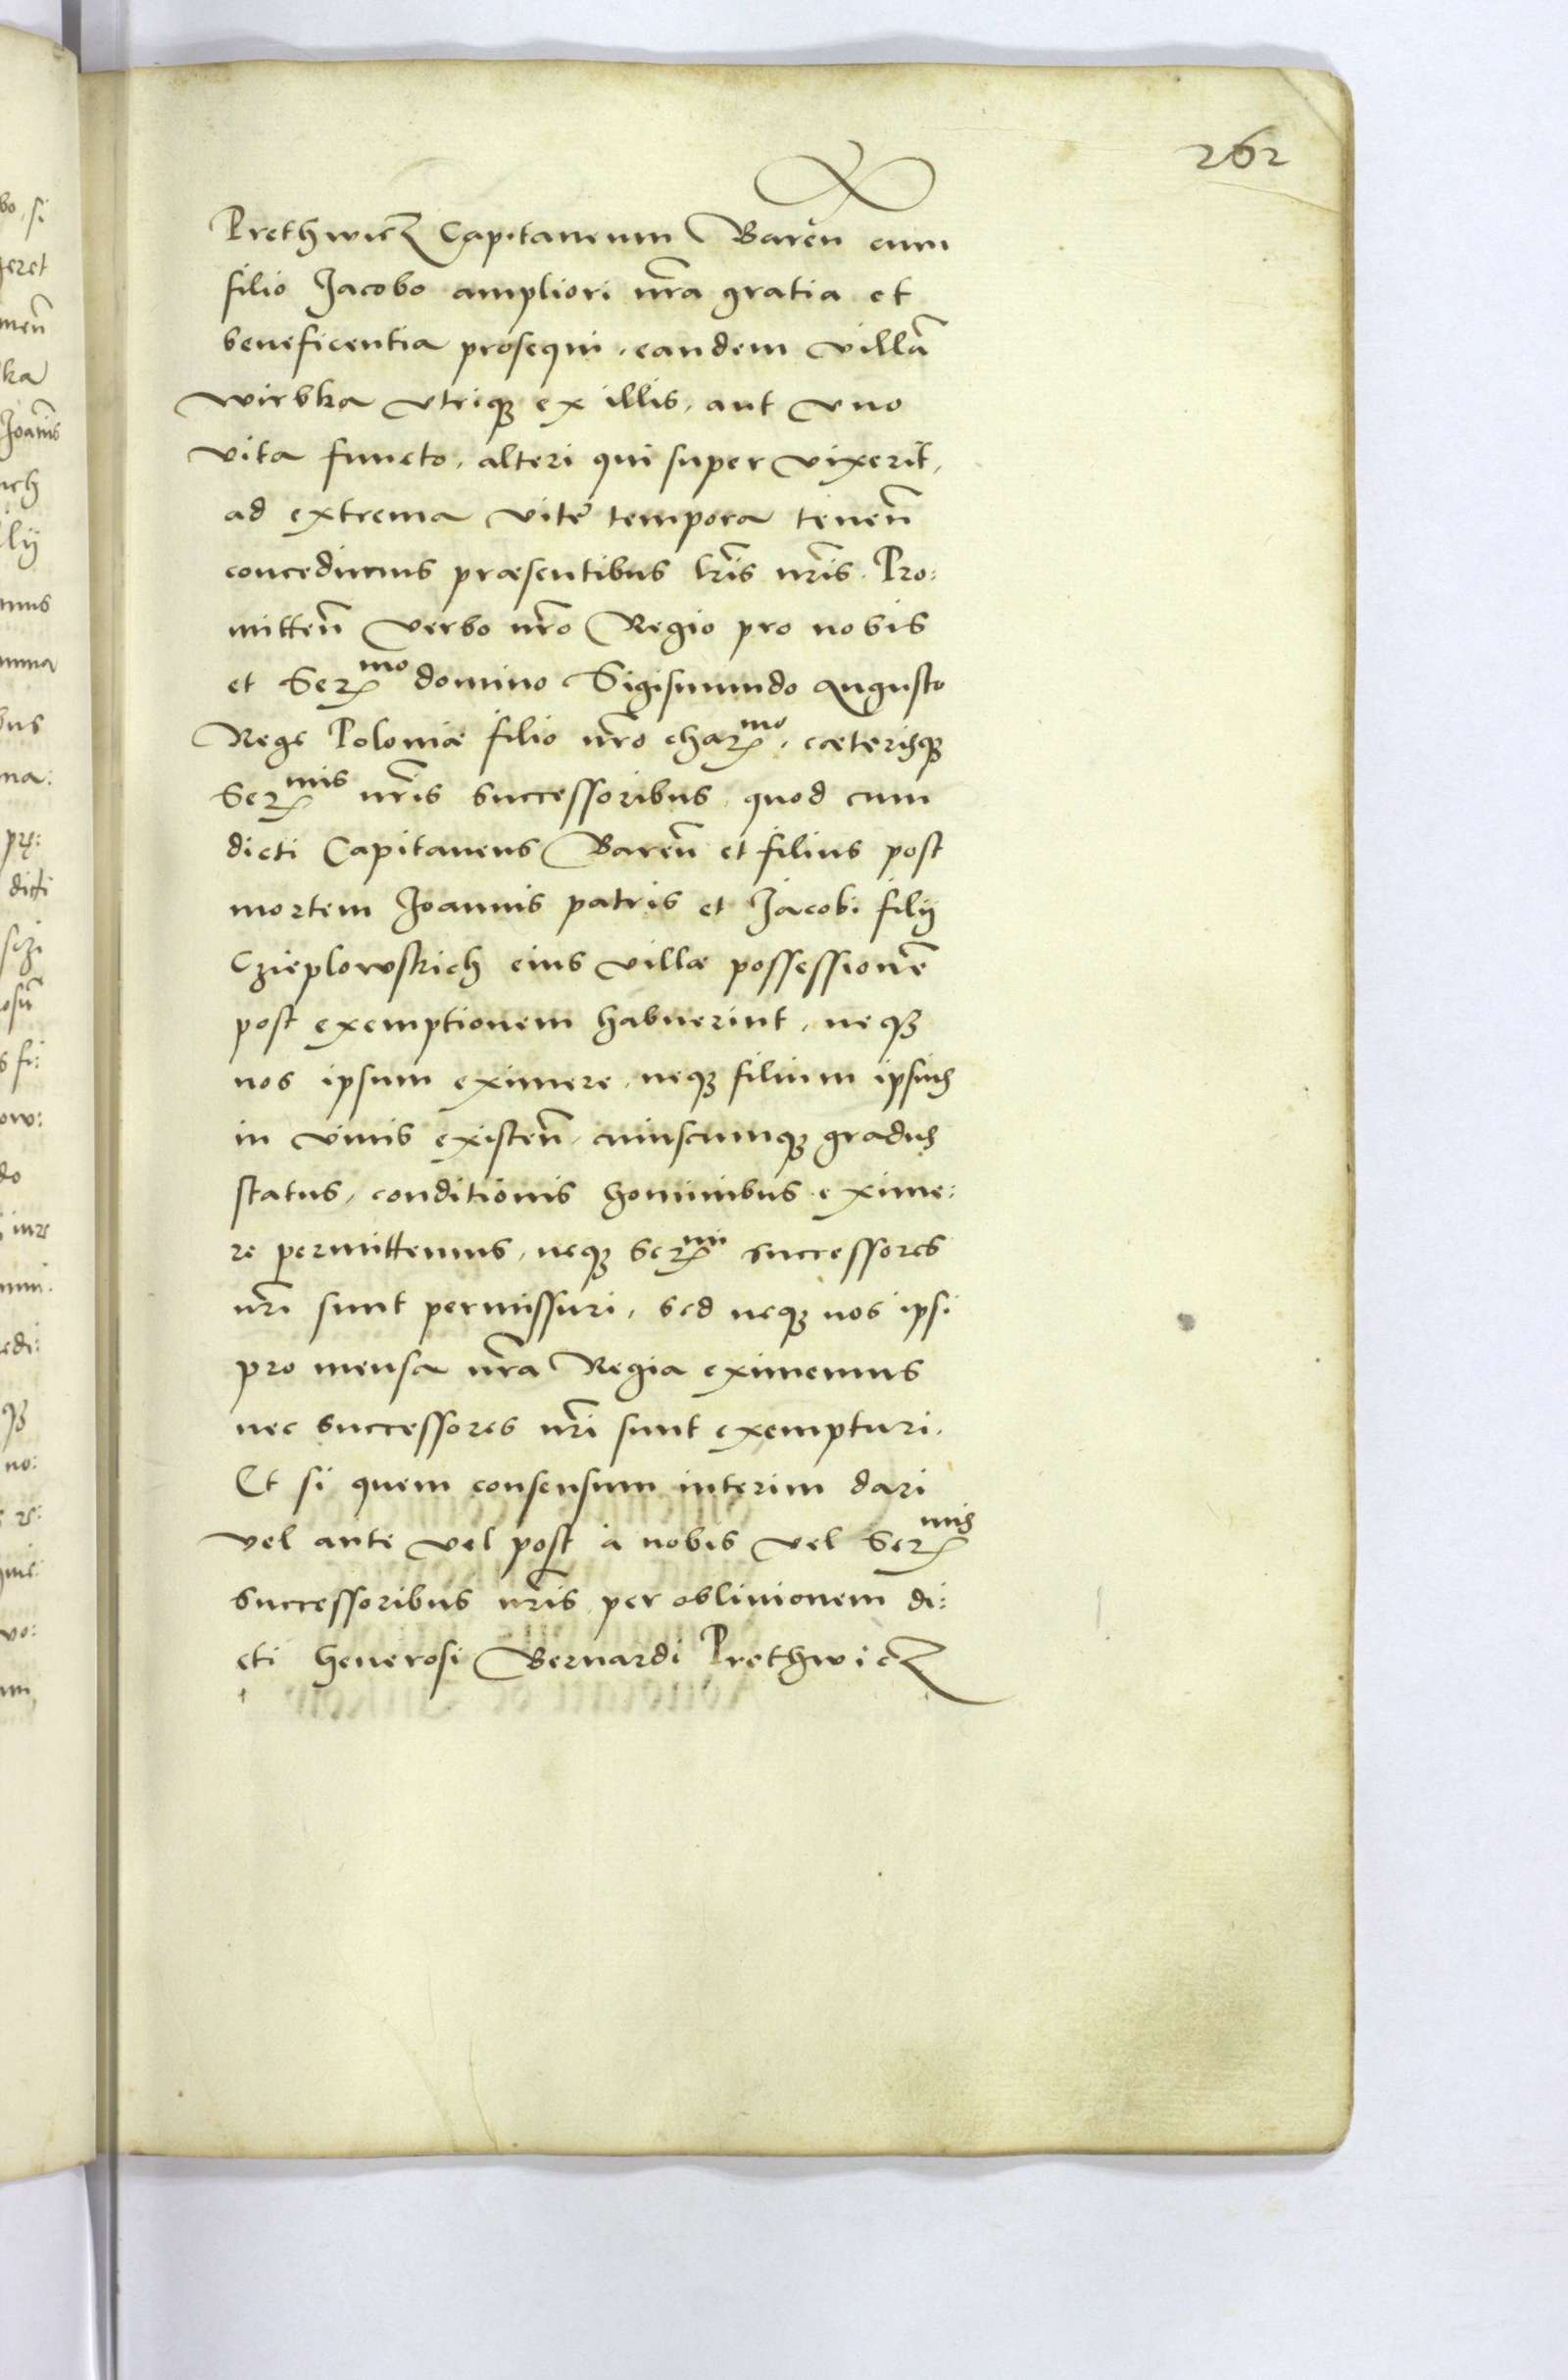 262
Prethwicz Capitaneum Baren̄ cum
filio Jacobo ampliori nr̄a gratia et
beneficentia prosequi, eandem villā
Wirbka vtriqȝ ex illis, aut vno
vita functo, alteri qui super vixerit,
ad extrema vite tempora tenen̄
concedimus præsentibus lr̄is nr̄is. Pro:
mitten̄ verbo nr̄o Regio pro nobis
et Ser^mo domino Sigismundo Augusto
Rege Poloniæ filio nr̄o char^mo, cæterisqȝ
Ser^mis nr̄is successoribus, quod cum
dicti Capitaneus Baren̄ et filius post
mortem Joannis patris et Jacobi filij
Czieplowskich eius villæ possessionē
post exemptionem habuerint, neqȝ
nos ipsum eximere, neqȝ filium ipsius
in viuis existen̄, cuiuscunqȝ gradus
status, conditionis hominibus exime:
re permittemus, neqȝ Ser^mi successores
nr̄i sunt permissuri, sed neqȝ nos ipsi
pro mensa nr̄a Regia eximemus
nec successores nr̄i sunt exempturi.
Et si quem consensum interim dari
vel ante vel post à nobis vel Ser^mis
successoribus nr̄is per obliuionem di:
cti Generosi Bernardi Prethwicz